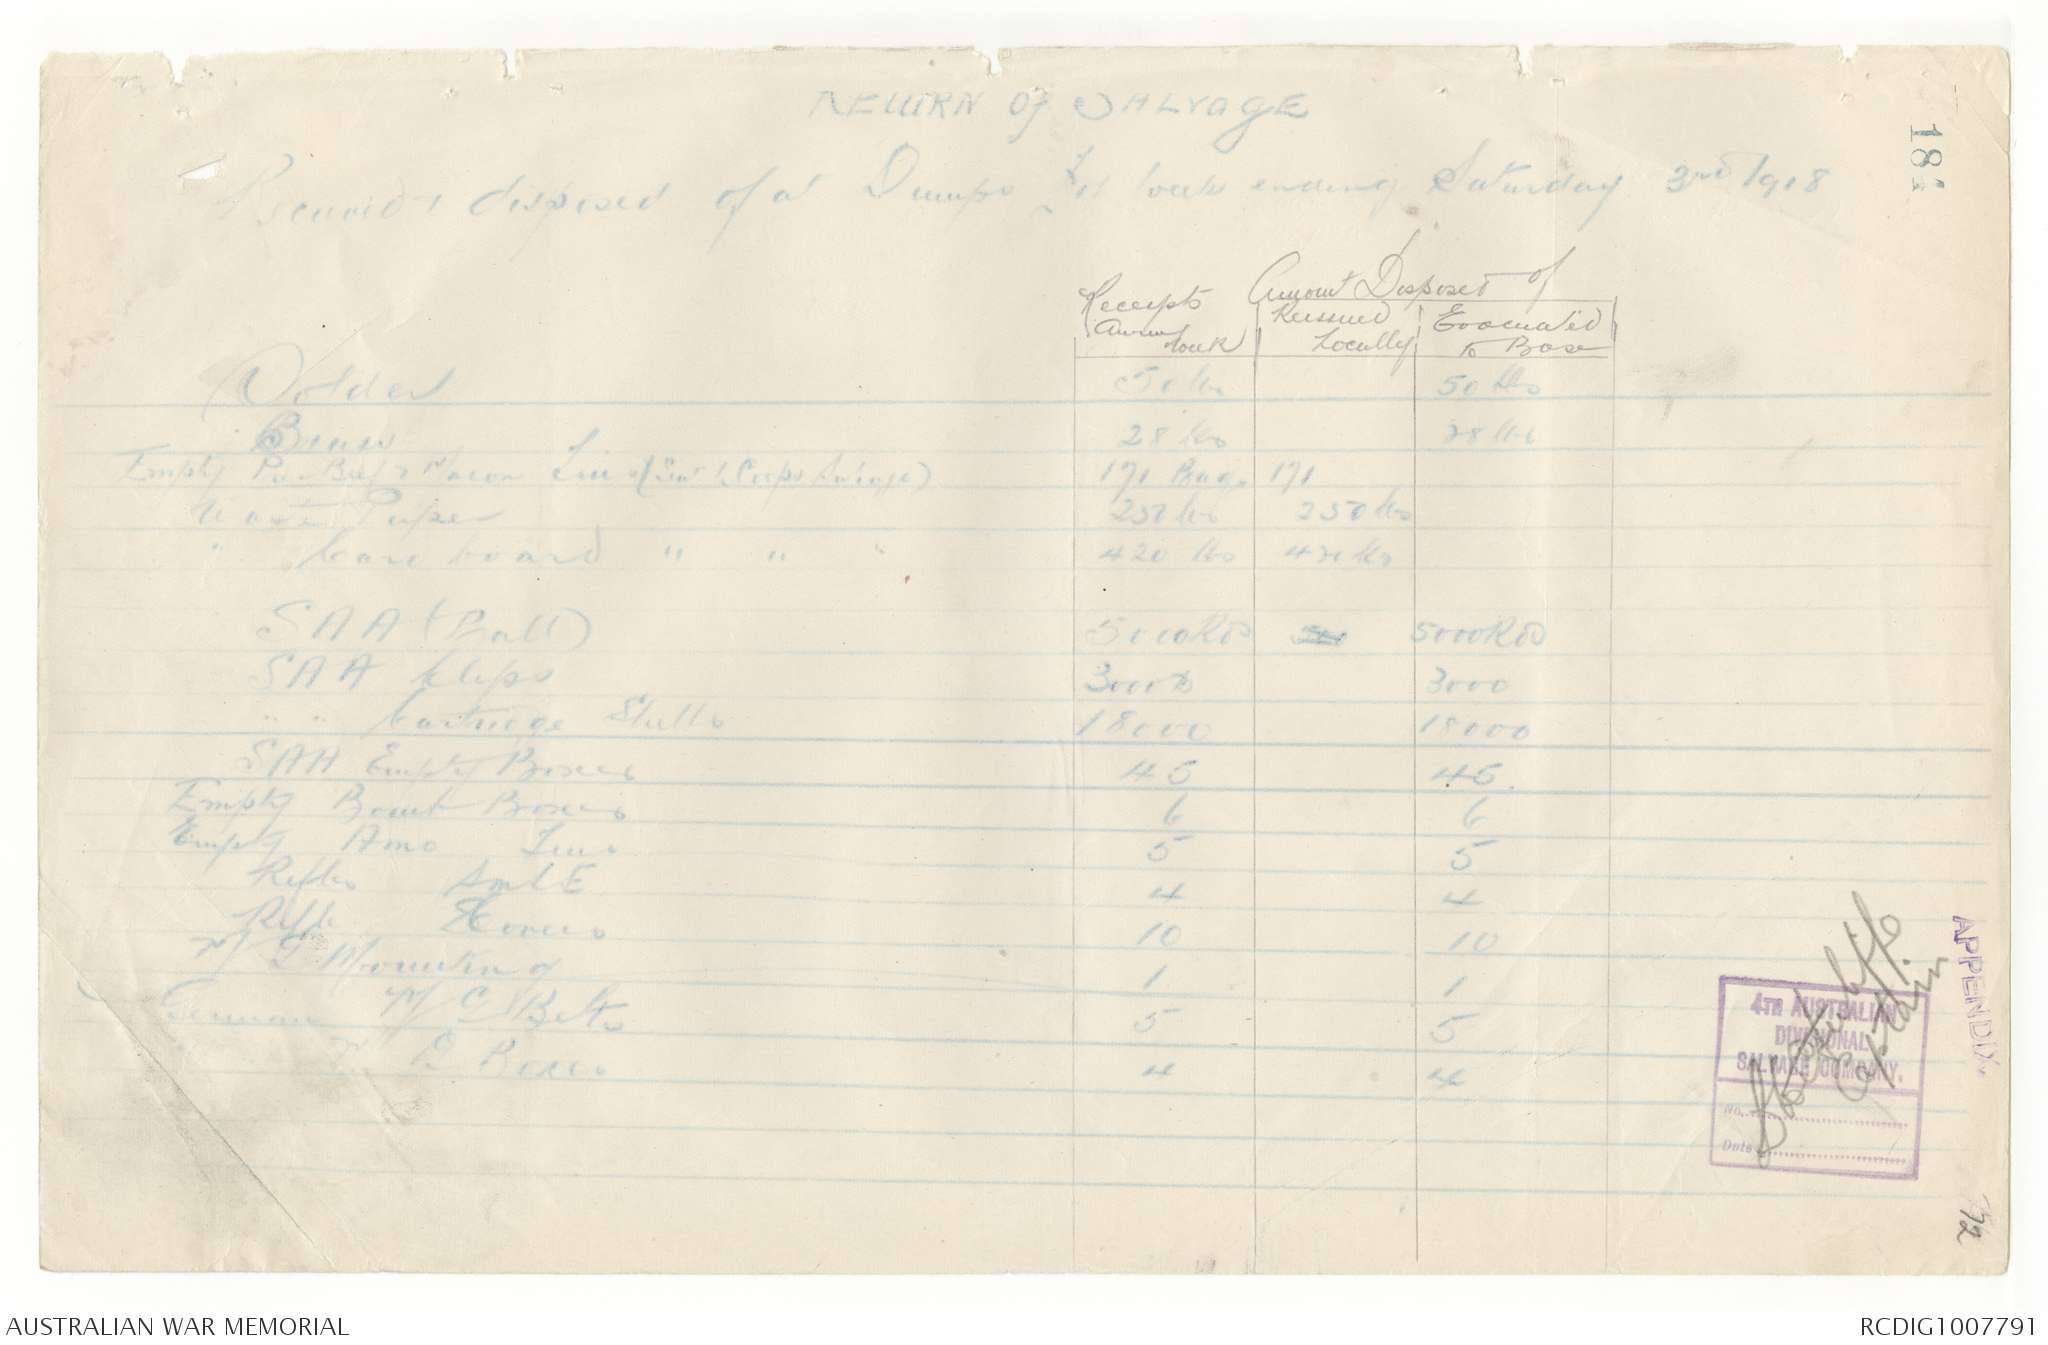 RETURN OF SALVAGE
181
disposed of at Dumps for week ending Saturday 3rd 1918
Receipts Amount Disposed of
week Reissued Locally Evacuated to Base
Solder 50 lbs 50 lbs
Brass 28 lbs 28 lbs
Empty Beef & Bacon Tins (Corps Salvage) 171 Bags 171
Waste Paper 250 lbs 250 lbs
" Card board " " " 420 lbs 420 lbs
SAA (Ball) 5000 Rds 5000 Rds
SAA Clips 3000 3000
" " Cartridge Shells 18000 18000
SAA Empty Boxes 45 45
Empty Bomb Boxes 6 6
Empty Amo Tins 5 5
Rifles SMLE 4 4
Rifle Covers 10 10
Mounting 1 1
German M G Belts 5 5
Boxes 4 4
4TH AUSTRALIAN
DIVISIONAL
SALVAGE COMPANY.
No.
Date
Captain
APPENDIX
72
AUSTRALIAN WAR MEMORIAL
RCDIG1007791